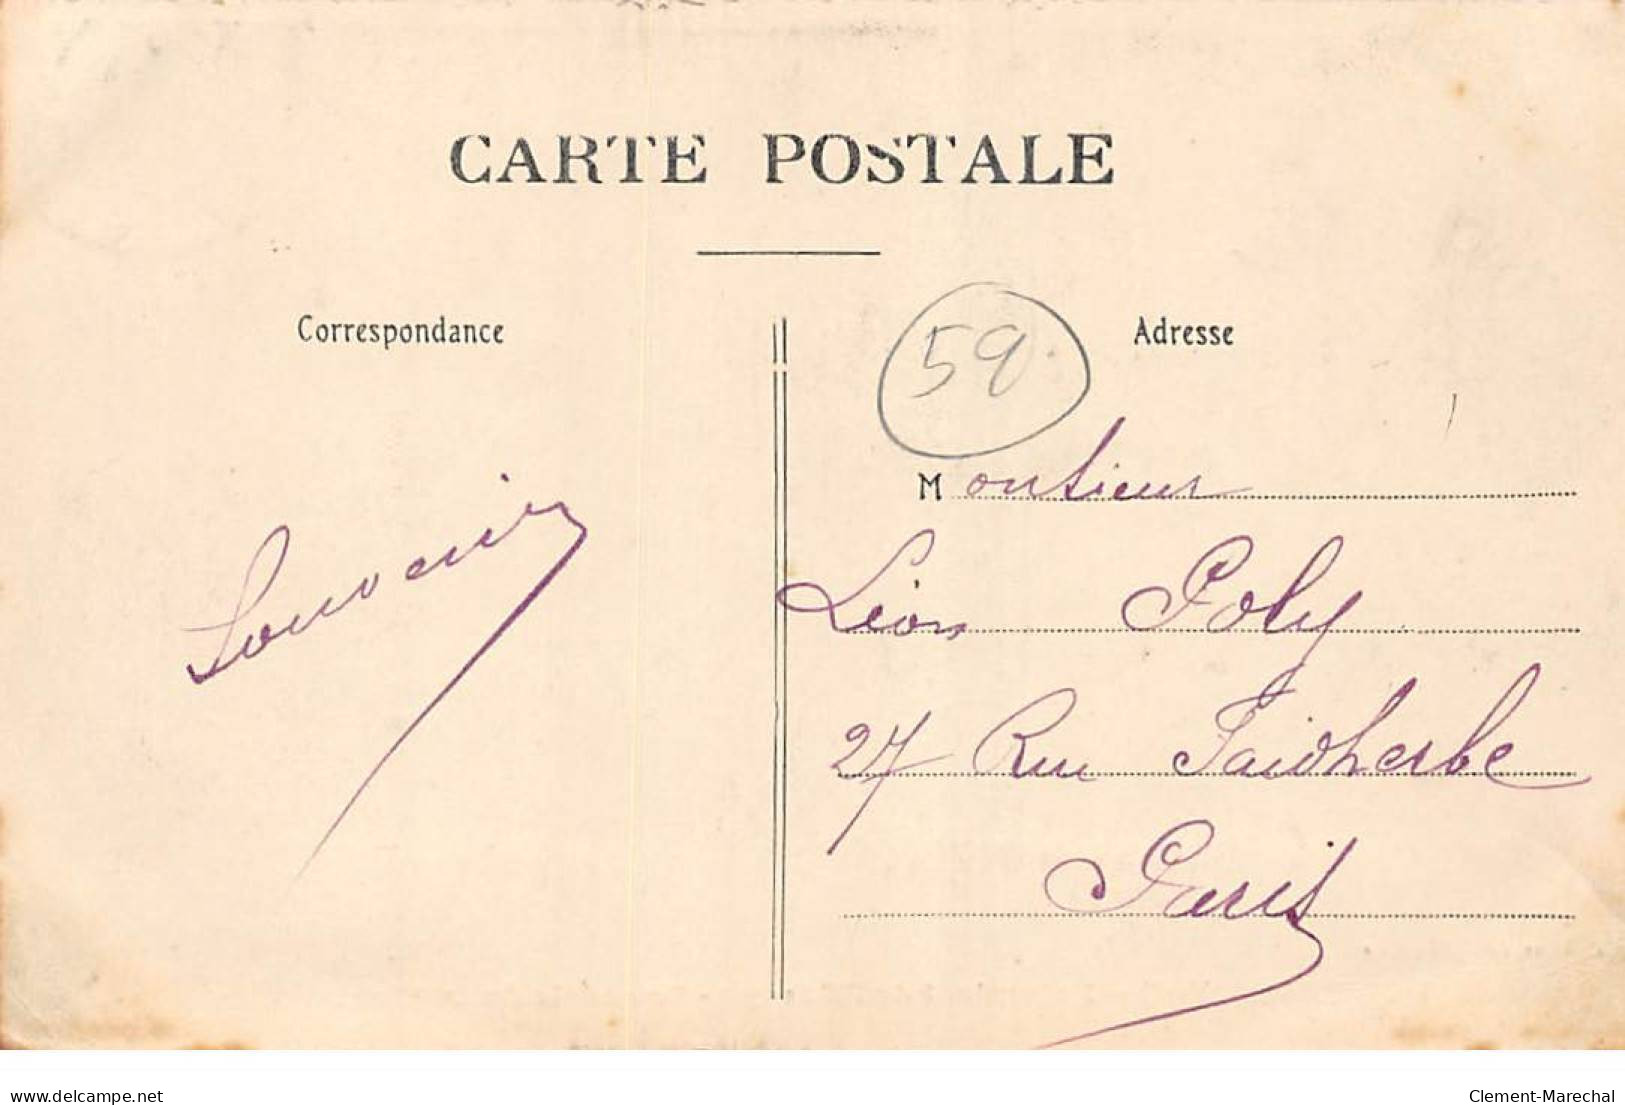 CARTE POSTALE
Correspondance
Adresse
59
Souvenir
Monsieur
Léon Poly
27 Rue Faidherbe
Paris
delcampe.net
Clement-Marechal